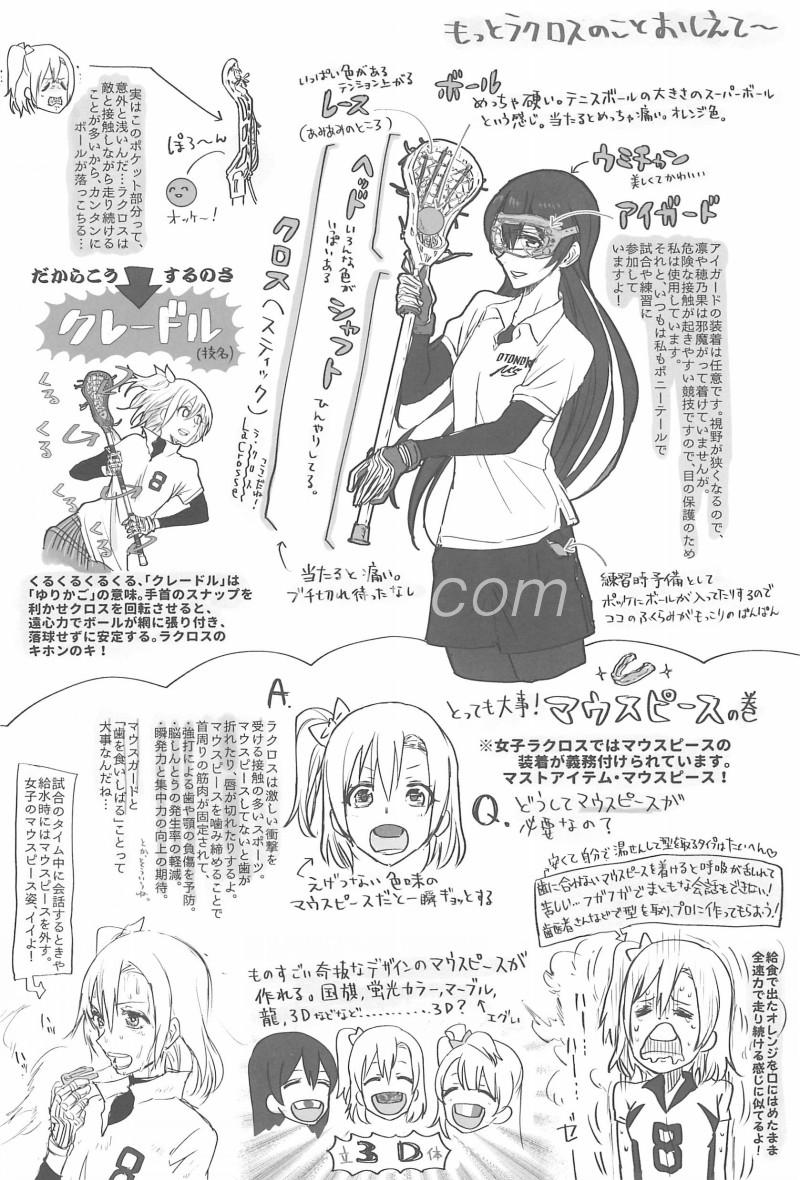 もっとラクロスのことおしえて〜
ボール
めっちゃ硬い。テニスボールの大きさのスーパーボール
という感じ。当たるとめっちゃ痛い。オレンジ色。
いっぱい色がある
テンション上がる
レース
(あみあみのところ)
ウミチャン
美しくてかわいい
アイガード
アイガードの装着は任意です。視野が狭くなるので、
凛や穂乃果は邪魔がって着けていませんが、
危険な接触が起きやすい競技ですので、目の保護のため
私は使用しています。
それと、いつもは私もポニーテールで
試合や練習に
参加して
いますよ!
ヘッド
いろんな色が
いっぱいある
シャフト
ひんやりしてる。
クロス(スティック)
ここだね!
ラ・クロス
LaCrosse
当たると痛い。
ブチ切れ待ったなし
OTONOK
μ's
練習時予備として
ポッケにボールが入ってたりするので
ココのふくらみがもっこりのぱんぱん
実はこのポケット部分って、
意外と浅いんだ…ラクロスは
敵と接触しながら走り続ける
ことが多いから、カンタンに
ボールが落っこちる…
ぽろ〜ん
オッケ〜!
だからこう
するのさ
クレードル
(技名)
くる
くる
くる
くる
8
くるくるくるくる、「クレードル」は
「ゆりかご」の意味。手首のスナップを
利かせクロスを回転させると、
遠心力でボールが網に張り付き、
落球せずに安定する。ラクロスの
キホンのキ!
com
とっても大事!マウスピースの巻
※女子ラクロスではマウスピースの
装着が義務付けられています。
マストアイテム・マウスピース!
Q.どうしてマウスピースが
必要なの?
A.
ラクロスは激しい衝撃を
受ける接触の多いスポーツ。
マウスピースしてないと歯が
折れたり、唇が切れたりするよ。
マウスピースを噛み締めることで
首周りの筋肉が固定されて、
・強打による歯や顎の負傷を予防。
・脳しんとうの発生率の軽減。
・瞬発力と集中力の向上の期待。
とかそういうやつ。
マウスガードと
「歯を食いしばる」ことって
大事なんだね…
えげつない色味の
マウスピースだと一瞬ギョッとする
安くて自分で湯せんして型取るタイプはたいへん♡
歯に合わないマウスピースを着けると呼吸が乱れて
苦しい…フガフガでまともな会話もできない!
歯医者さんなどで型を取り、プロに作ってもらおう!
給食で出たオレンジを口にはめたまま
全速力で走り続ける感じに似てるよ!
8
試合のタイム中に会話するときや
給水時にはマウスピースを外す。
女子のマウスピース姿、イイよ!
8
ものすごい奇抜なデザインのマウスピースが
作れる。国旗,蛍光カラー,マーブル,
龍,3Dなどなど…………3D?
エグい
立3D体